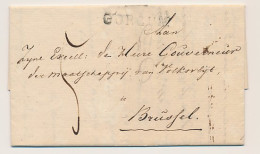 GORCUM
Aan
Zyne Excell: de Heere Gouverneur
der maatschappij van Volksvlyt
5
Brussel.